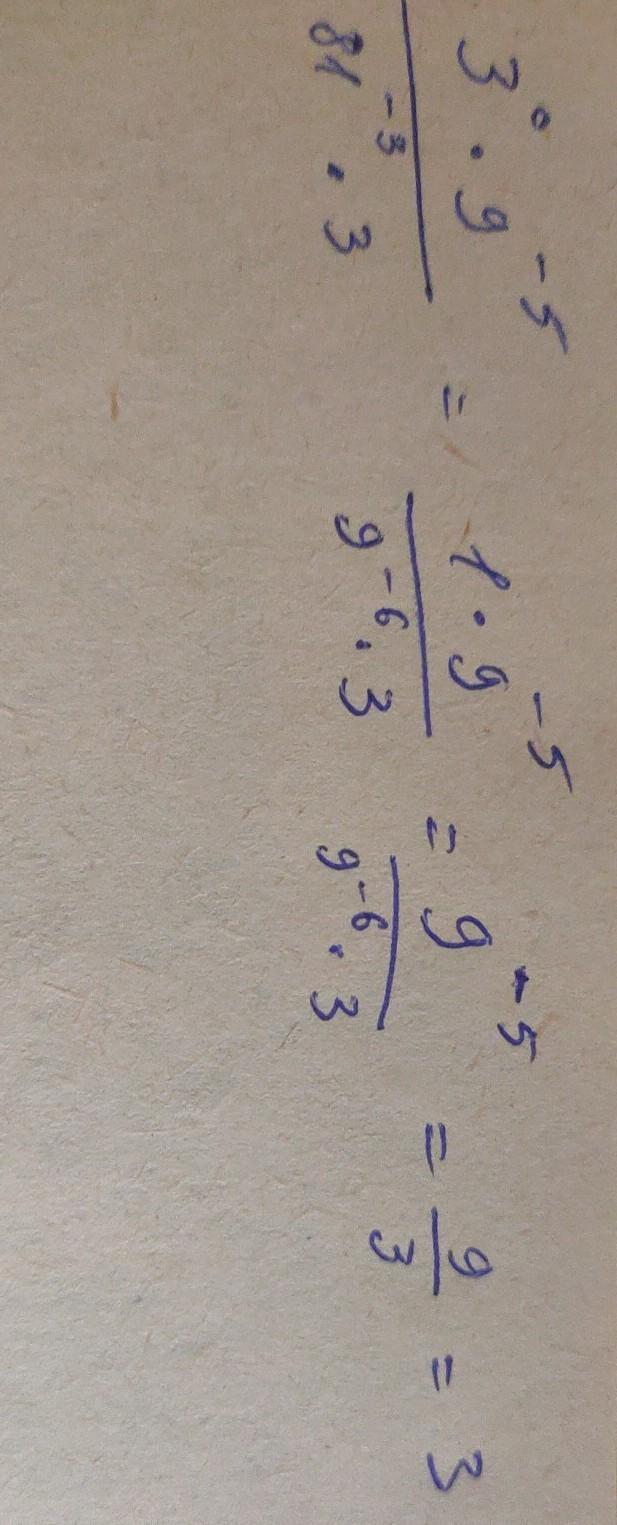 3⁰ · 9⁻⁵ / 81⁻³ · 3 = 1 · 9⁻⁵ / 9⁻⁶ · 3 = 9⁻⁵ / 9⁻⁶ · 3 = 9 / 3 = 3